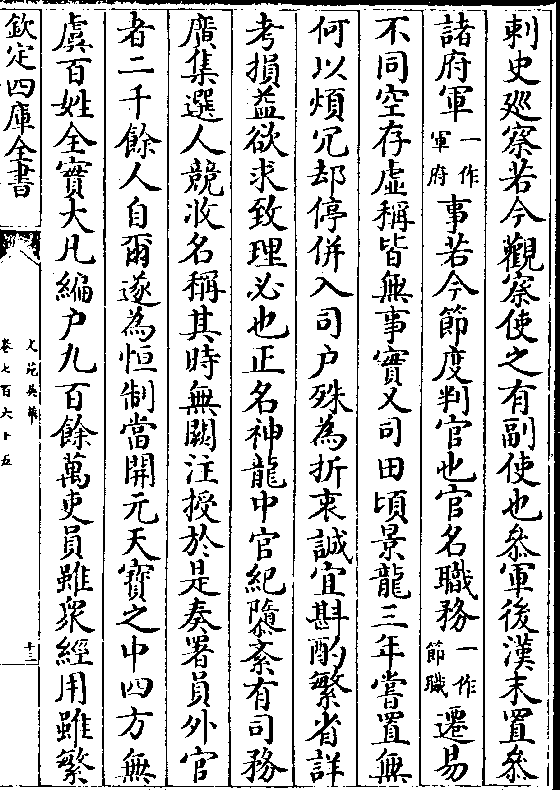 刺史廵察若今觀察使之有副使也叅軍後漢末置叅
諸府軍一作軍府事若今節度判官也官名職務一作節職遷易
不同空存虛稱皆無事實又司田頃景龍三年嘗置無
何以煩冗却停併入司户殊為折衷誠宜斟酌繁省詳
考損益欲求致理必也正名神龍中官紀隳紊有司務
廣集選人競收名稱其時無闕注授於是奏署員外官
者二千餘人自爾遂為恒制當開元天寳之中四方無
虞百姓全實大凡編户九百餘萬吏員雖衆經用雖繁
欽定四庫全書
文苑英華
卷七百六十五
十三